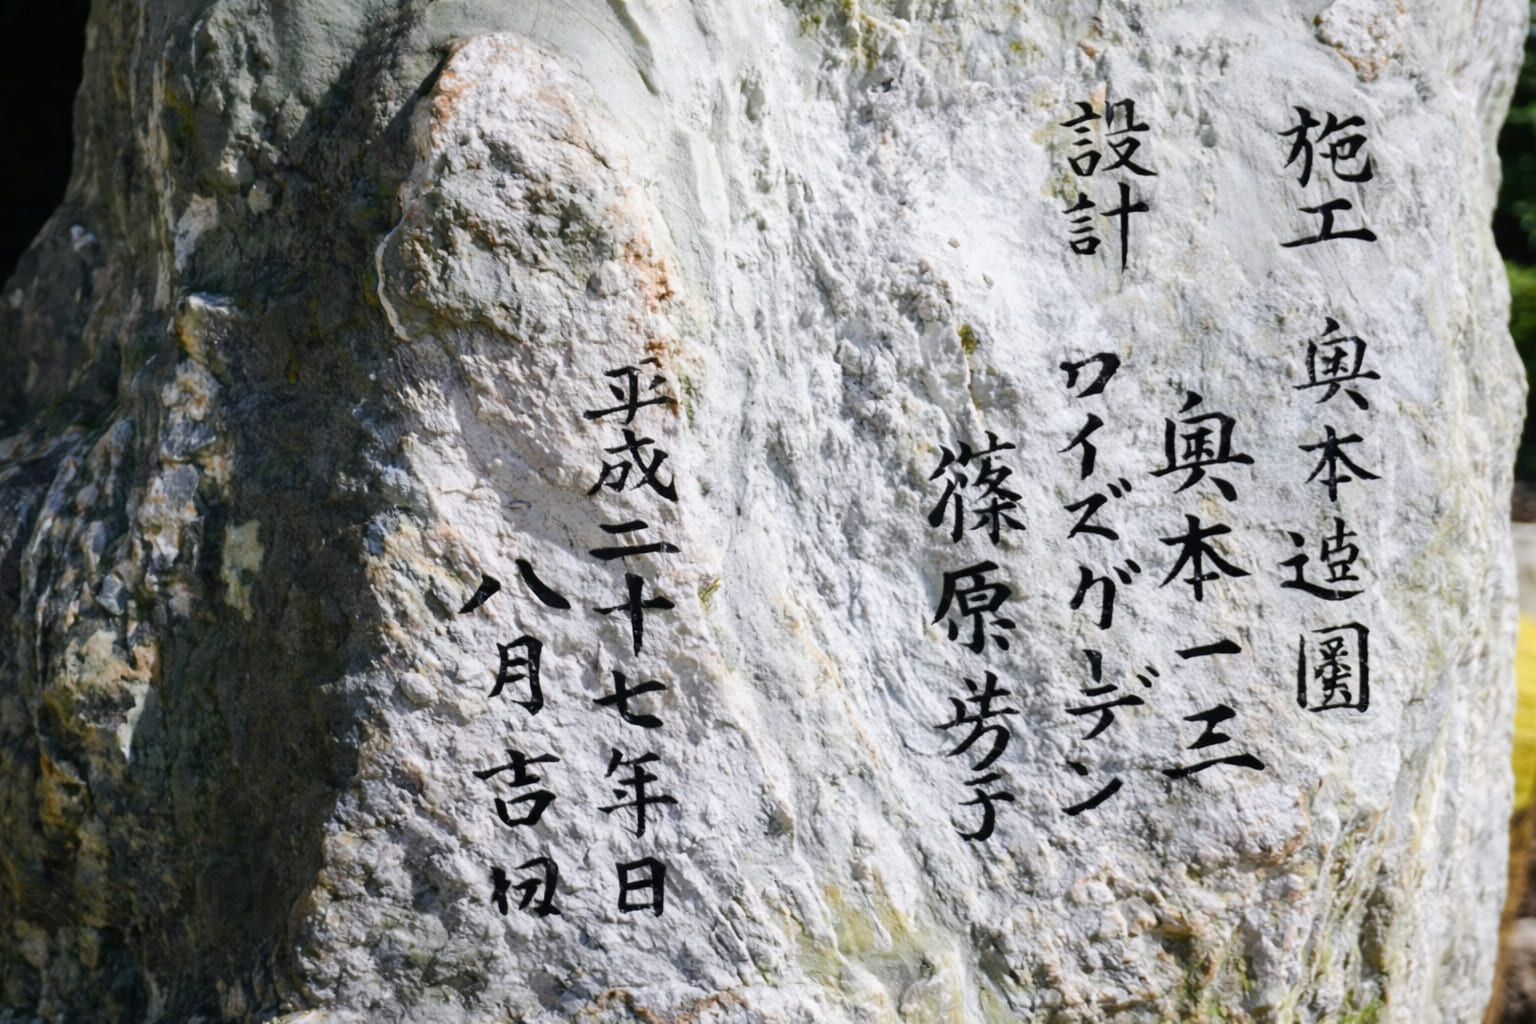 施工 奥本造園
奥本一三
設計 ワイズガーデン
篠原芳子
平成二十七年日
八月吉